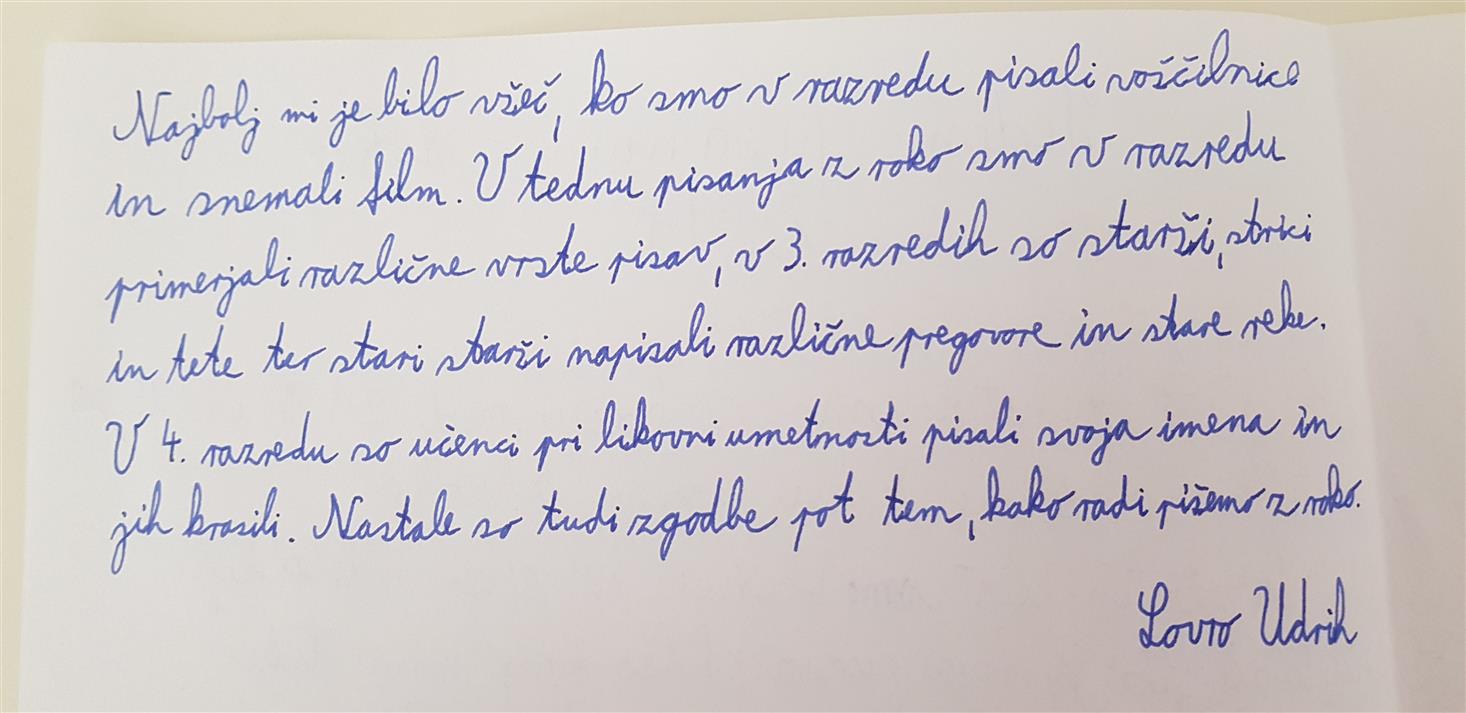 Najbolj mi je bilo všeč, ko smo v razredu pisali voščilnice
in snemali film. V tednu pisanja z roko smo v razredu
primerjali različne vrste pisav, v 3. razredih so starši, strici
in tete ter stari starši napisali različne pregovore in stare reke.
V 4. razredu so učenci pri likovni umetnosti pisali svoja imena in
jih krasili. Nastale so tudi zgodbe pot tem, kako radi pišemo z roko.
Lovro Udrih